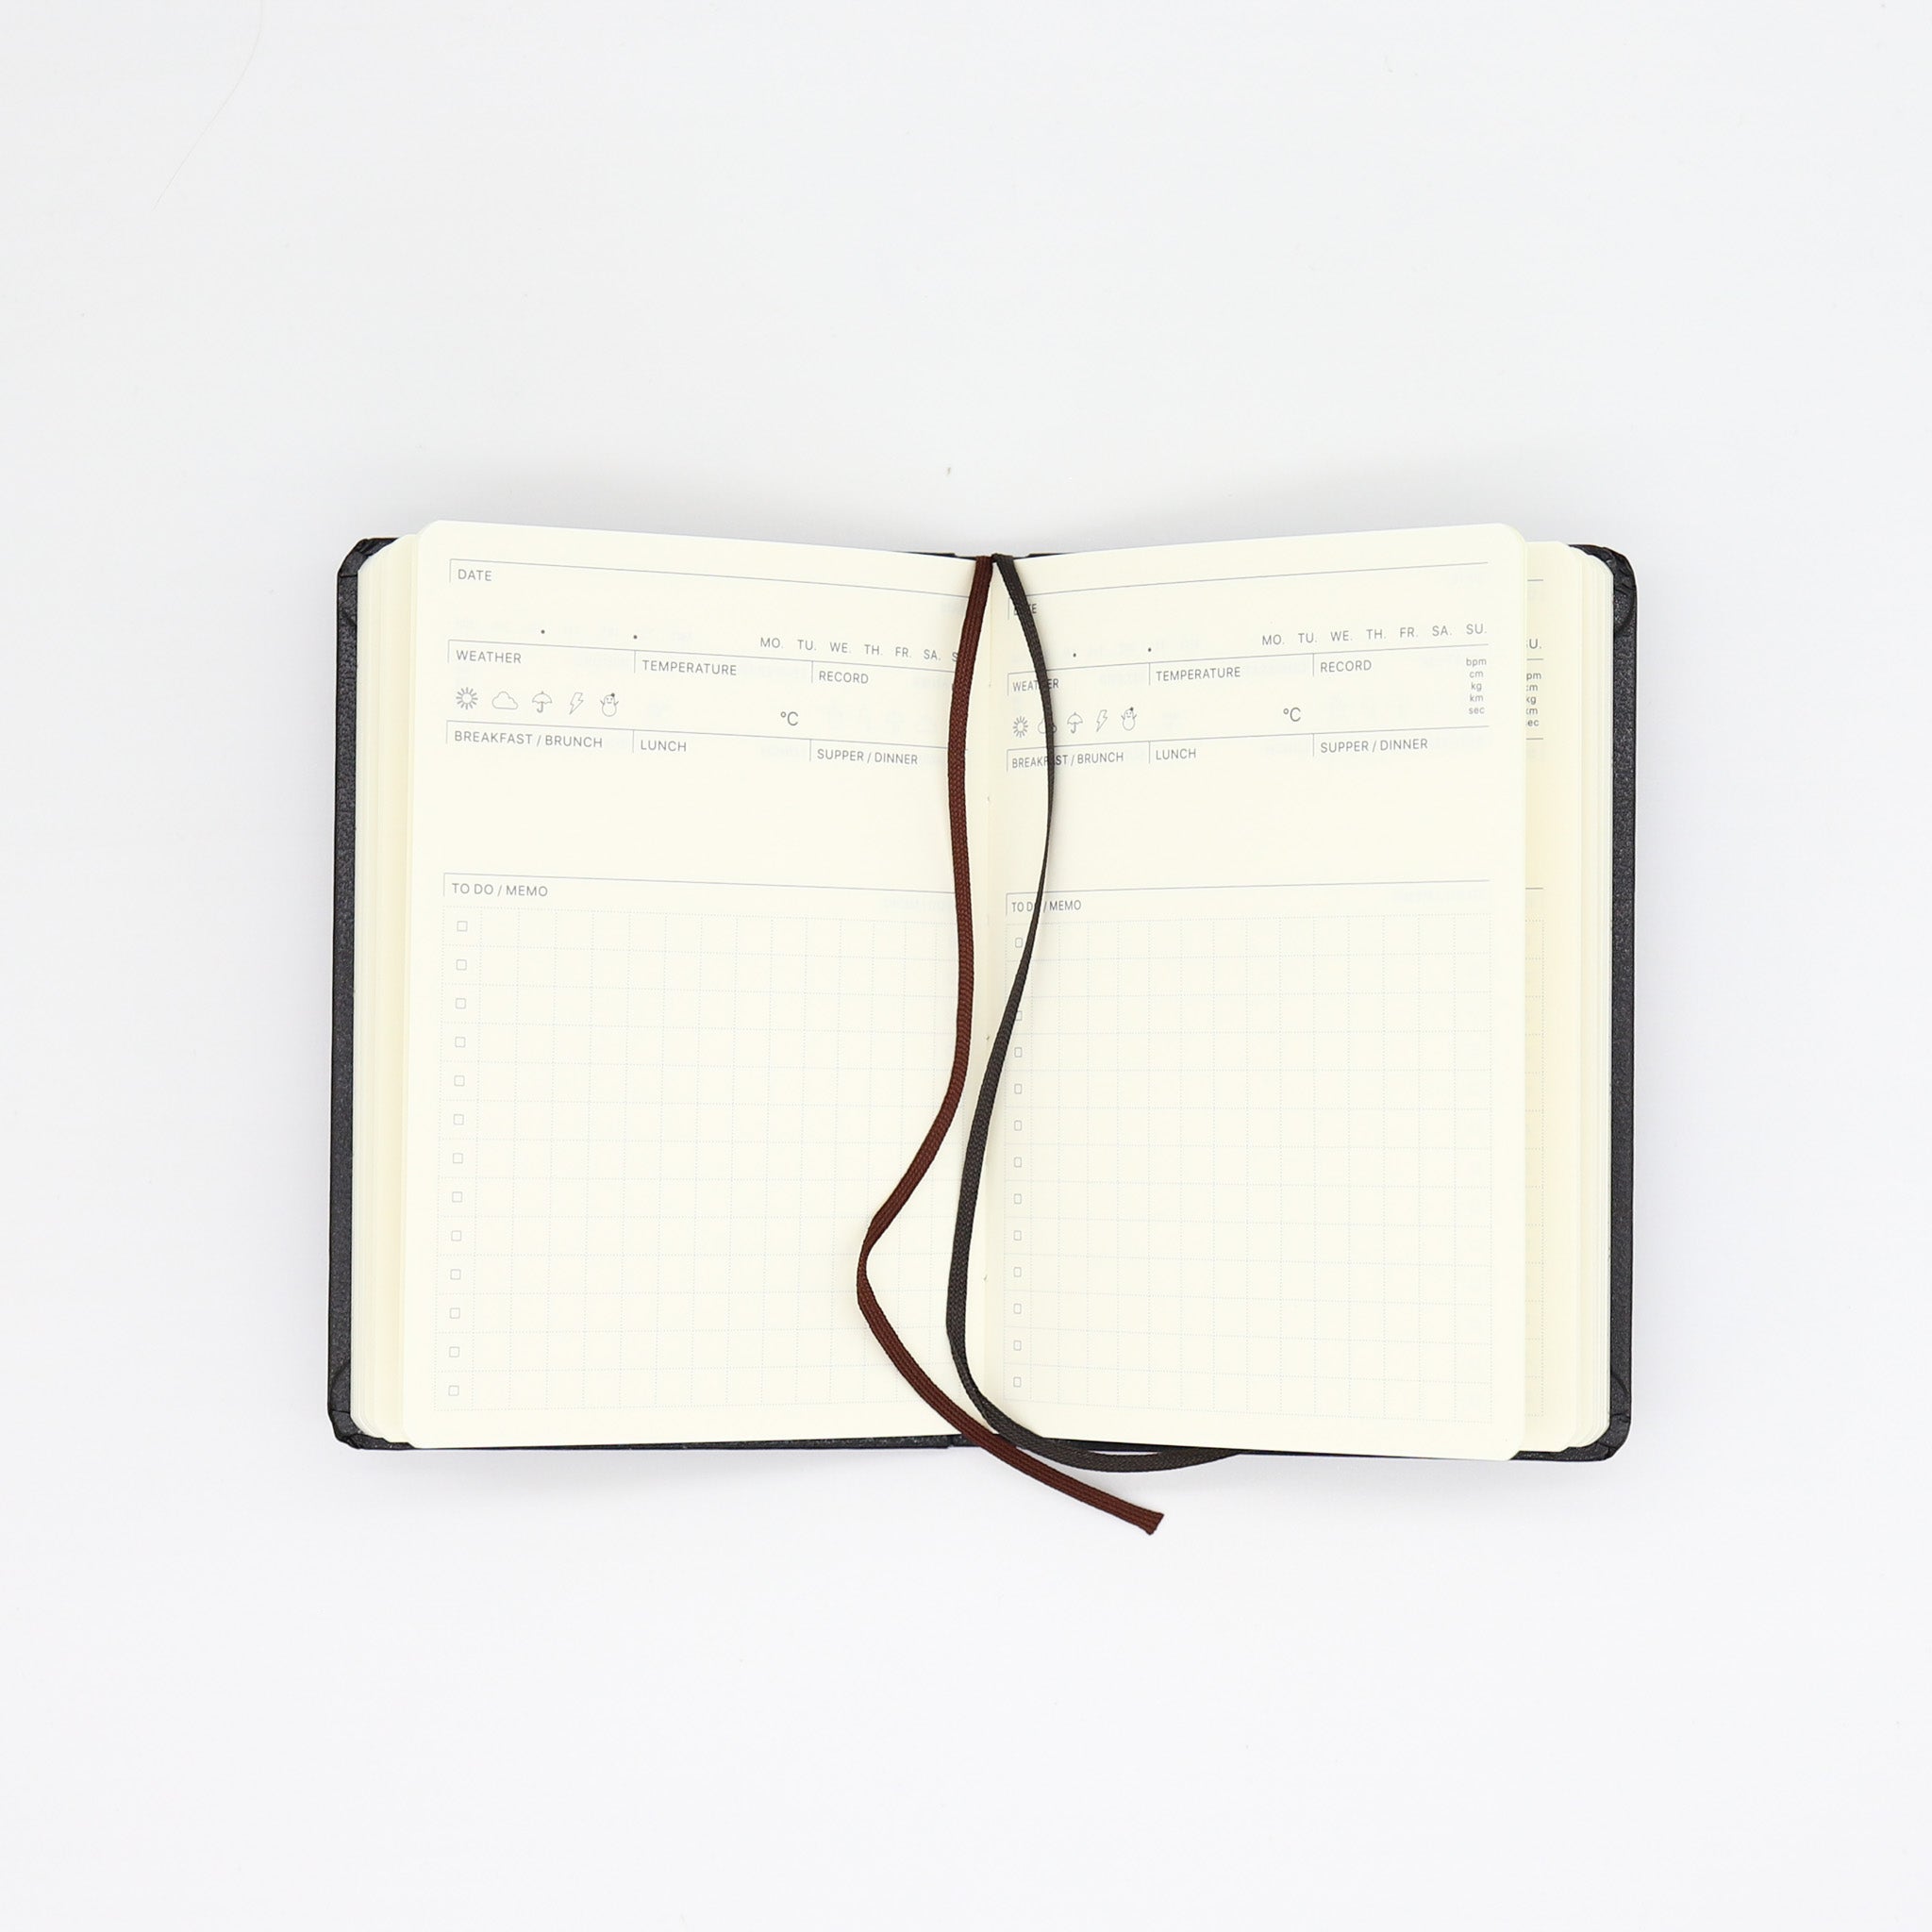 DATE
MO. TU. WE. TH. FR. SA.
WEATHER TEMPERATURE RECORD
°C
BREAKFAST / BRUNCH LUNCH SUPPER / DINNER
TO DO / MEMO
MO. TU. WE. TH. FR. SA. SU.
WEATHER TEMPERATURE RECORD bpm
cm
kg
km
sec
°C
BREAKFAST / BRUNCH LUNCH SUPPER / DINNER
TO DO / MEMO
SU.